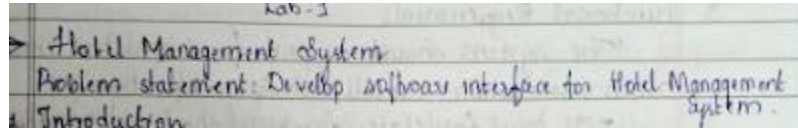 Lab-1
→ Hotel Management System
Problem statement: Develop software interface for Hotel Management
System.
1. Introduction